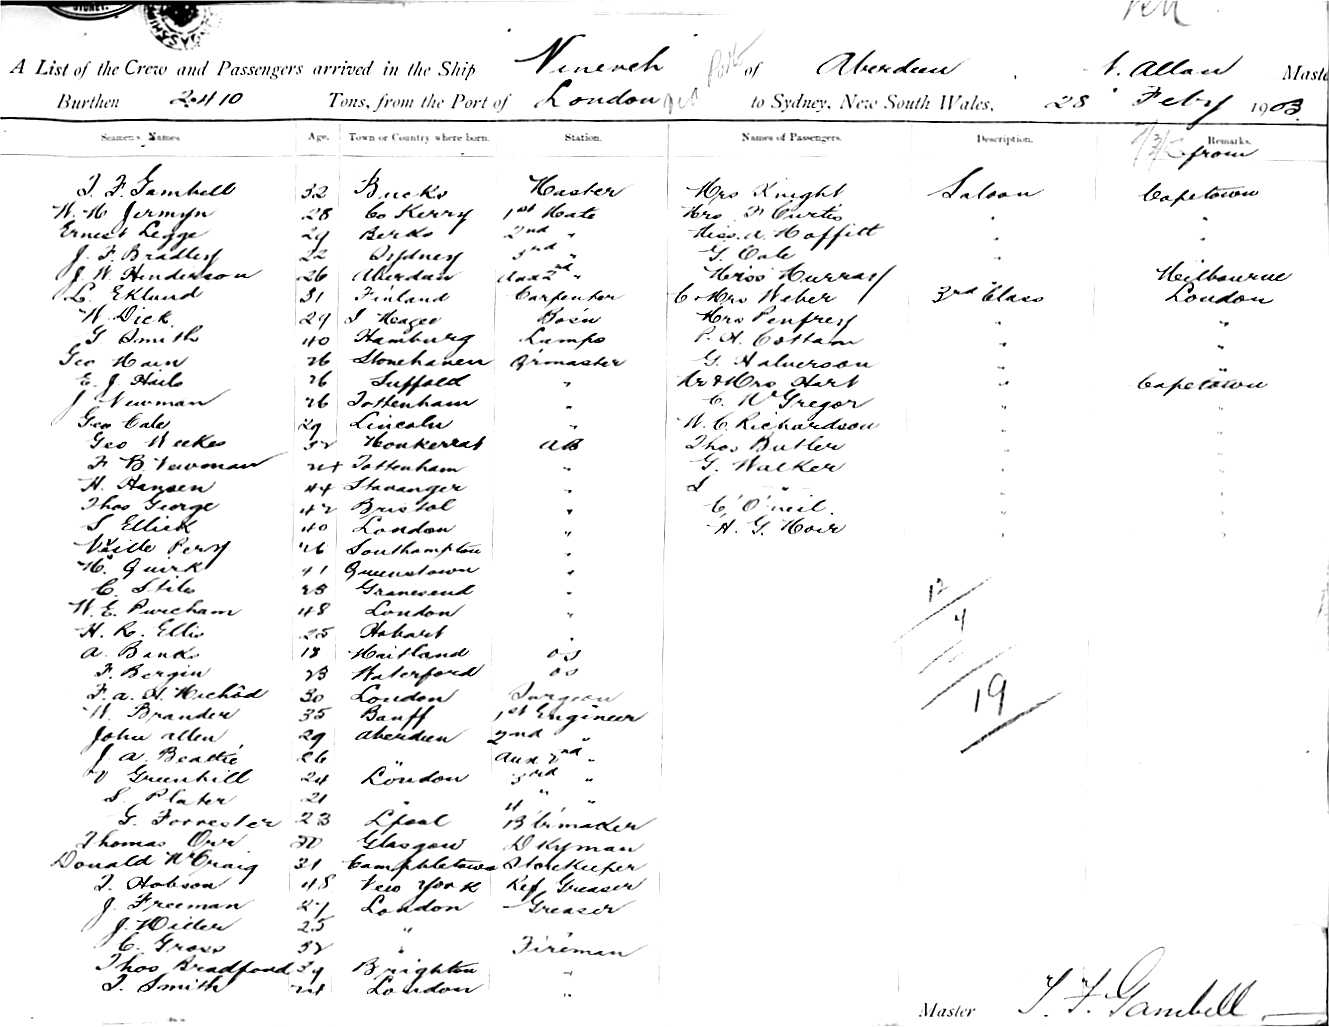 SYDNEY.
A List of the Crew and Passengers arrived in the Ship Nineveh of Aberdeen, Allan Master
Burthen 2410 Tons, from the Port of London to Sydney, New South Wales, 28 Feby 1903
Seamen's Names Age. Town or Country where born. Station. Names of Passengers. Description. Remarks.
from
T. F. Gambell 32 Bucks Master Mrs Knight Saloon Capetown
W. H. Jermyn 28 Co Kerry 1st Mate Mrs F Curtis " "
Ernest Legge 29 Berks 2nd " Miss A. Moffitt " "
J. F. Bradley 22 Sydney 3rd " G. Cale " "
J. W. Henderson 26 Aberdeen Aux 2nd " Miss Murray " Melbourne
L. Eklund 31 Finland Carpenter C & Mrs Weber 3rd Class London
W. Dick 29 Bos'n Mrs Penfrey " "
G Smith 40 Hamburg Lamps P. H. Cottam " "
Geo Main 26 Stonehaven Qrmaster G. Halverson " "
E. J. 26 Suffolk " Mr & Mrs Hart " Capetown
J Newman 26 Tottenham " C. McGregor " "
Geo Cale 29 Lincoln " W. C. Richardson " "
Geo Weekes 32 Monkerrat AB Thos Butler " "
F. B. Newman 24 Tottenham " G. Walker " "
H. Hansen 44 Stavanger " S " " "
Thos George 42 Bristol " C. O'neil. " "
S Ellick 40 London " H. G. Moir " "
Percy 26 Southampton "
W. Quirk 41 Queenstown "
C. Stiles 25 Gravesend "
W. E. Purcham 48 London "
H. R. Ellis 25 Hobart "
A. Banks 18 Maitland OS
F. Bergin 23 Waterford OS
F. A. H. 30 London Surgeon
W. Brander 35 Banff 1st Engineer
John Allen 29 Aberdeen 2nd "
J. A. Beattie 26 " Aux 2nd "
V Greenhill 24 London 3rd "
S. Plater 21 " 4 "
G. Forrester 23 L'pool B'lrmaker
Thomas Orr 20 Glasgow Dkyman
Donald McCraig 31 Campbletown Storekeeper
T. Hobson 48 New York Ref Greaser
J. Freeman 27 London Greaser
J. Miller 25 "
C. Gross 32 " Fireman
Thos Bradford 39 Brighton "
T. Smith 24 London "
12
4
19
Master T. F. Gambell